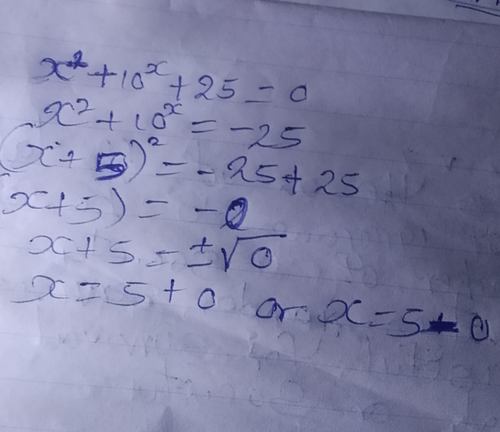 x² + 10ˣ + 25 = 0
x² + 10ˣ = -25
(x + 5)² = -25 + 25
(x + 5) = -0
x + 5 = ±√0
x = 5 + 0 or x = 5 - 0